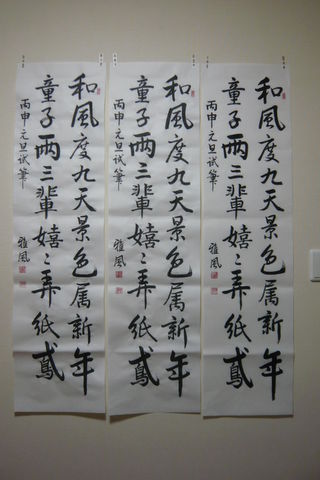 和風度九天景色属新年
童子兩三輩嬉〻弄紙鳶
丙申元旦试筆
雅風
和風度九天景色属新年
童子兩三輩嬉〻弄紙鳶
丙申元旦试筆
雅風
和風度九天景色属新年
童子兩三輩嬉〻弄紙鳶
丙申元旦试筆
雅風